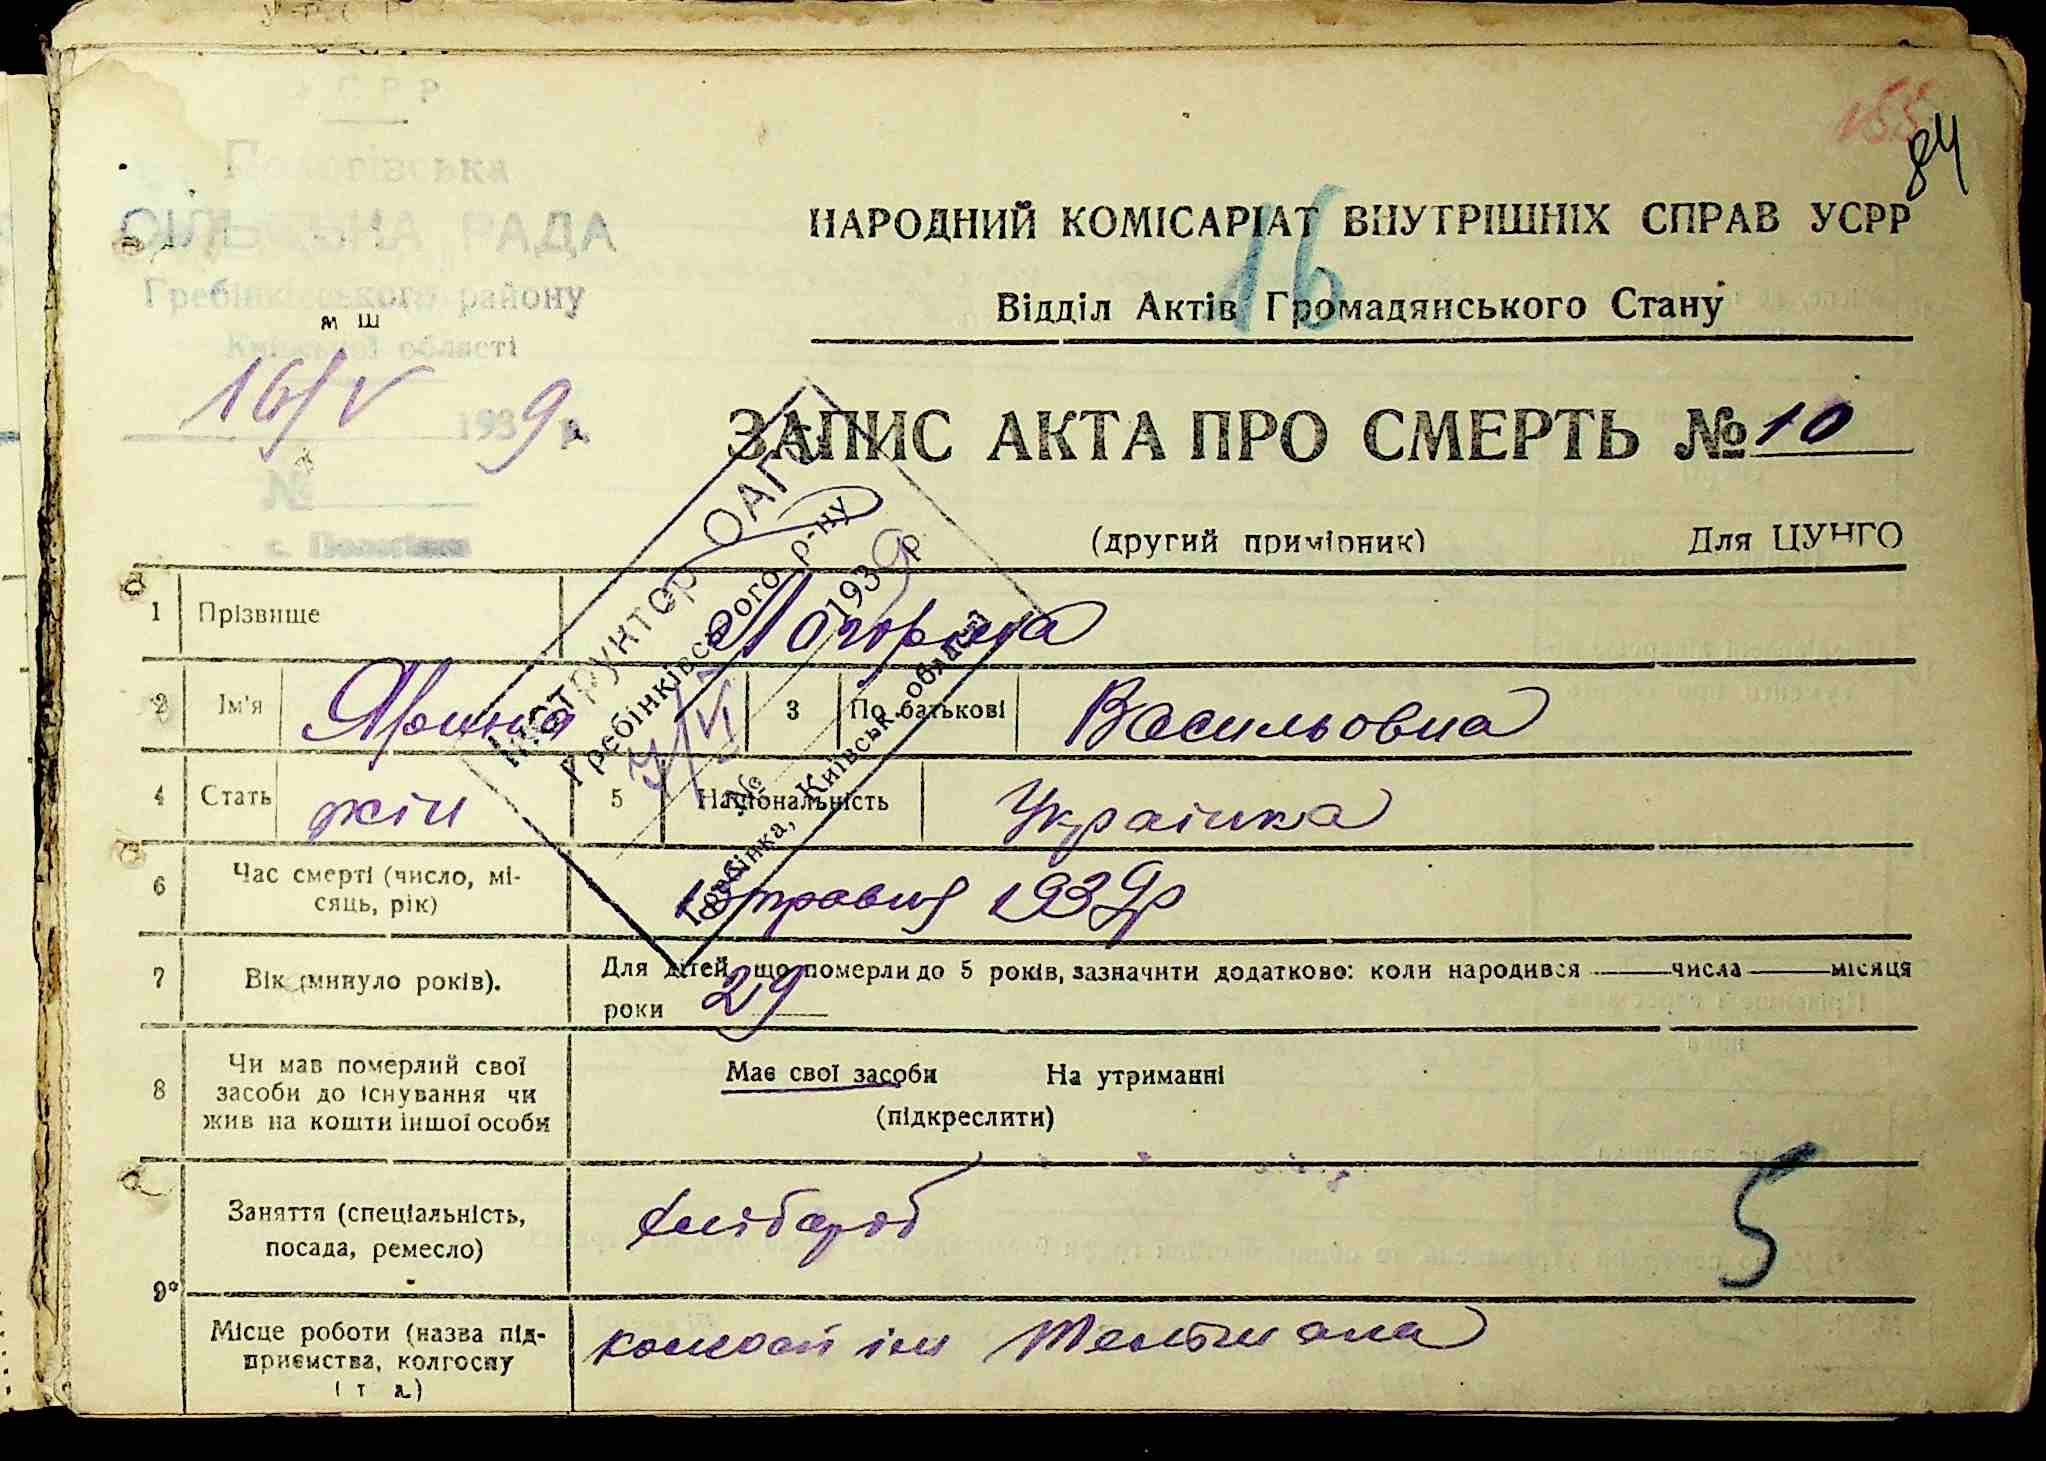 155
84
Пологівська
СІЛЬСЬКА РАДА
Гребінківського району
Київської області
16/V 1939 р.
№
с. Пологівка
НАРОДНИЙ КОМІСАРІАТ ВНУТРІШНІХ СПРАВ УСРР
16
Відділ Актів Громадянського Стану
ЗАПИС АКТА ПРО СМЕРТЬ № 10
(другий примірник) Для ЦУНГО
Інструктор ОАГС
Гребінківського р-ну
1939 р
№
Гребінка, Київськ. області
1 Прізвище
2 Ім'я Ярина 3 По батькові Васильовна
4 Стать жін 5 Національність Українка
6 Час смерті (число, мі-
сяць, рік) травня 1939р
7 Вік (минуло років). Для дітей, що померли до 5 років, зазначити додатково: коли народився числа місяця
роки 29
8 Чи мав померлий свої
засоби до існування чи
жив на кошти іншої особи
Має свої засоби На утриманні
(підкреслити)
Заняття (спеціальність,
посада, ремесло) хлібороб
5
9
Місце роботи (назва під-
приємства, колгоспу
і т д.)
колгосп ім Тельмана